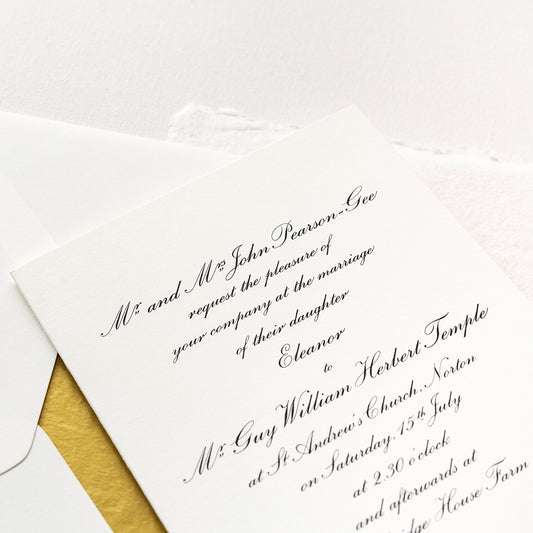 Mr. and Mrs John Pearson-Gee
request the pleasure of
your company at the marriage
of their daughter
Eleanor
to
Mr. Guy William Herbert Temple
at St Andrew's Church, Norton
on Saturday, 15th July
at 2.30 o'clock
and afterwards at
House Farm